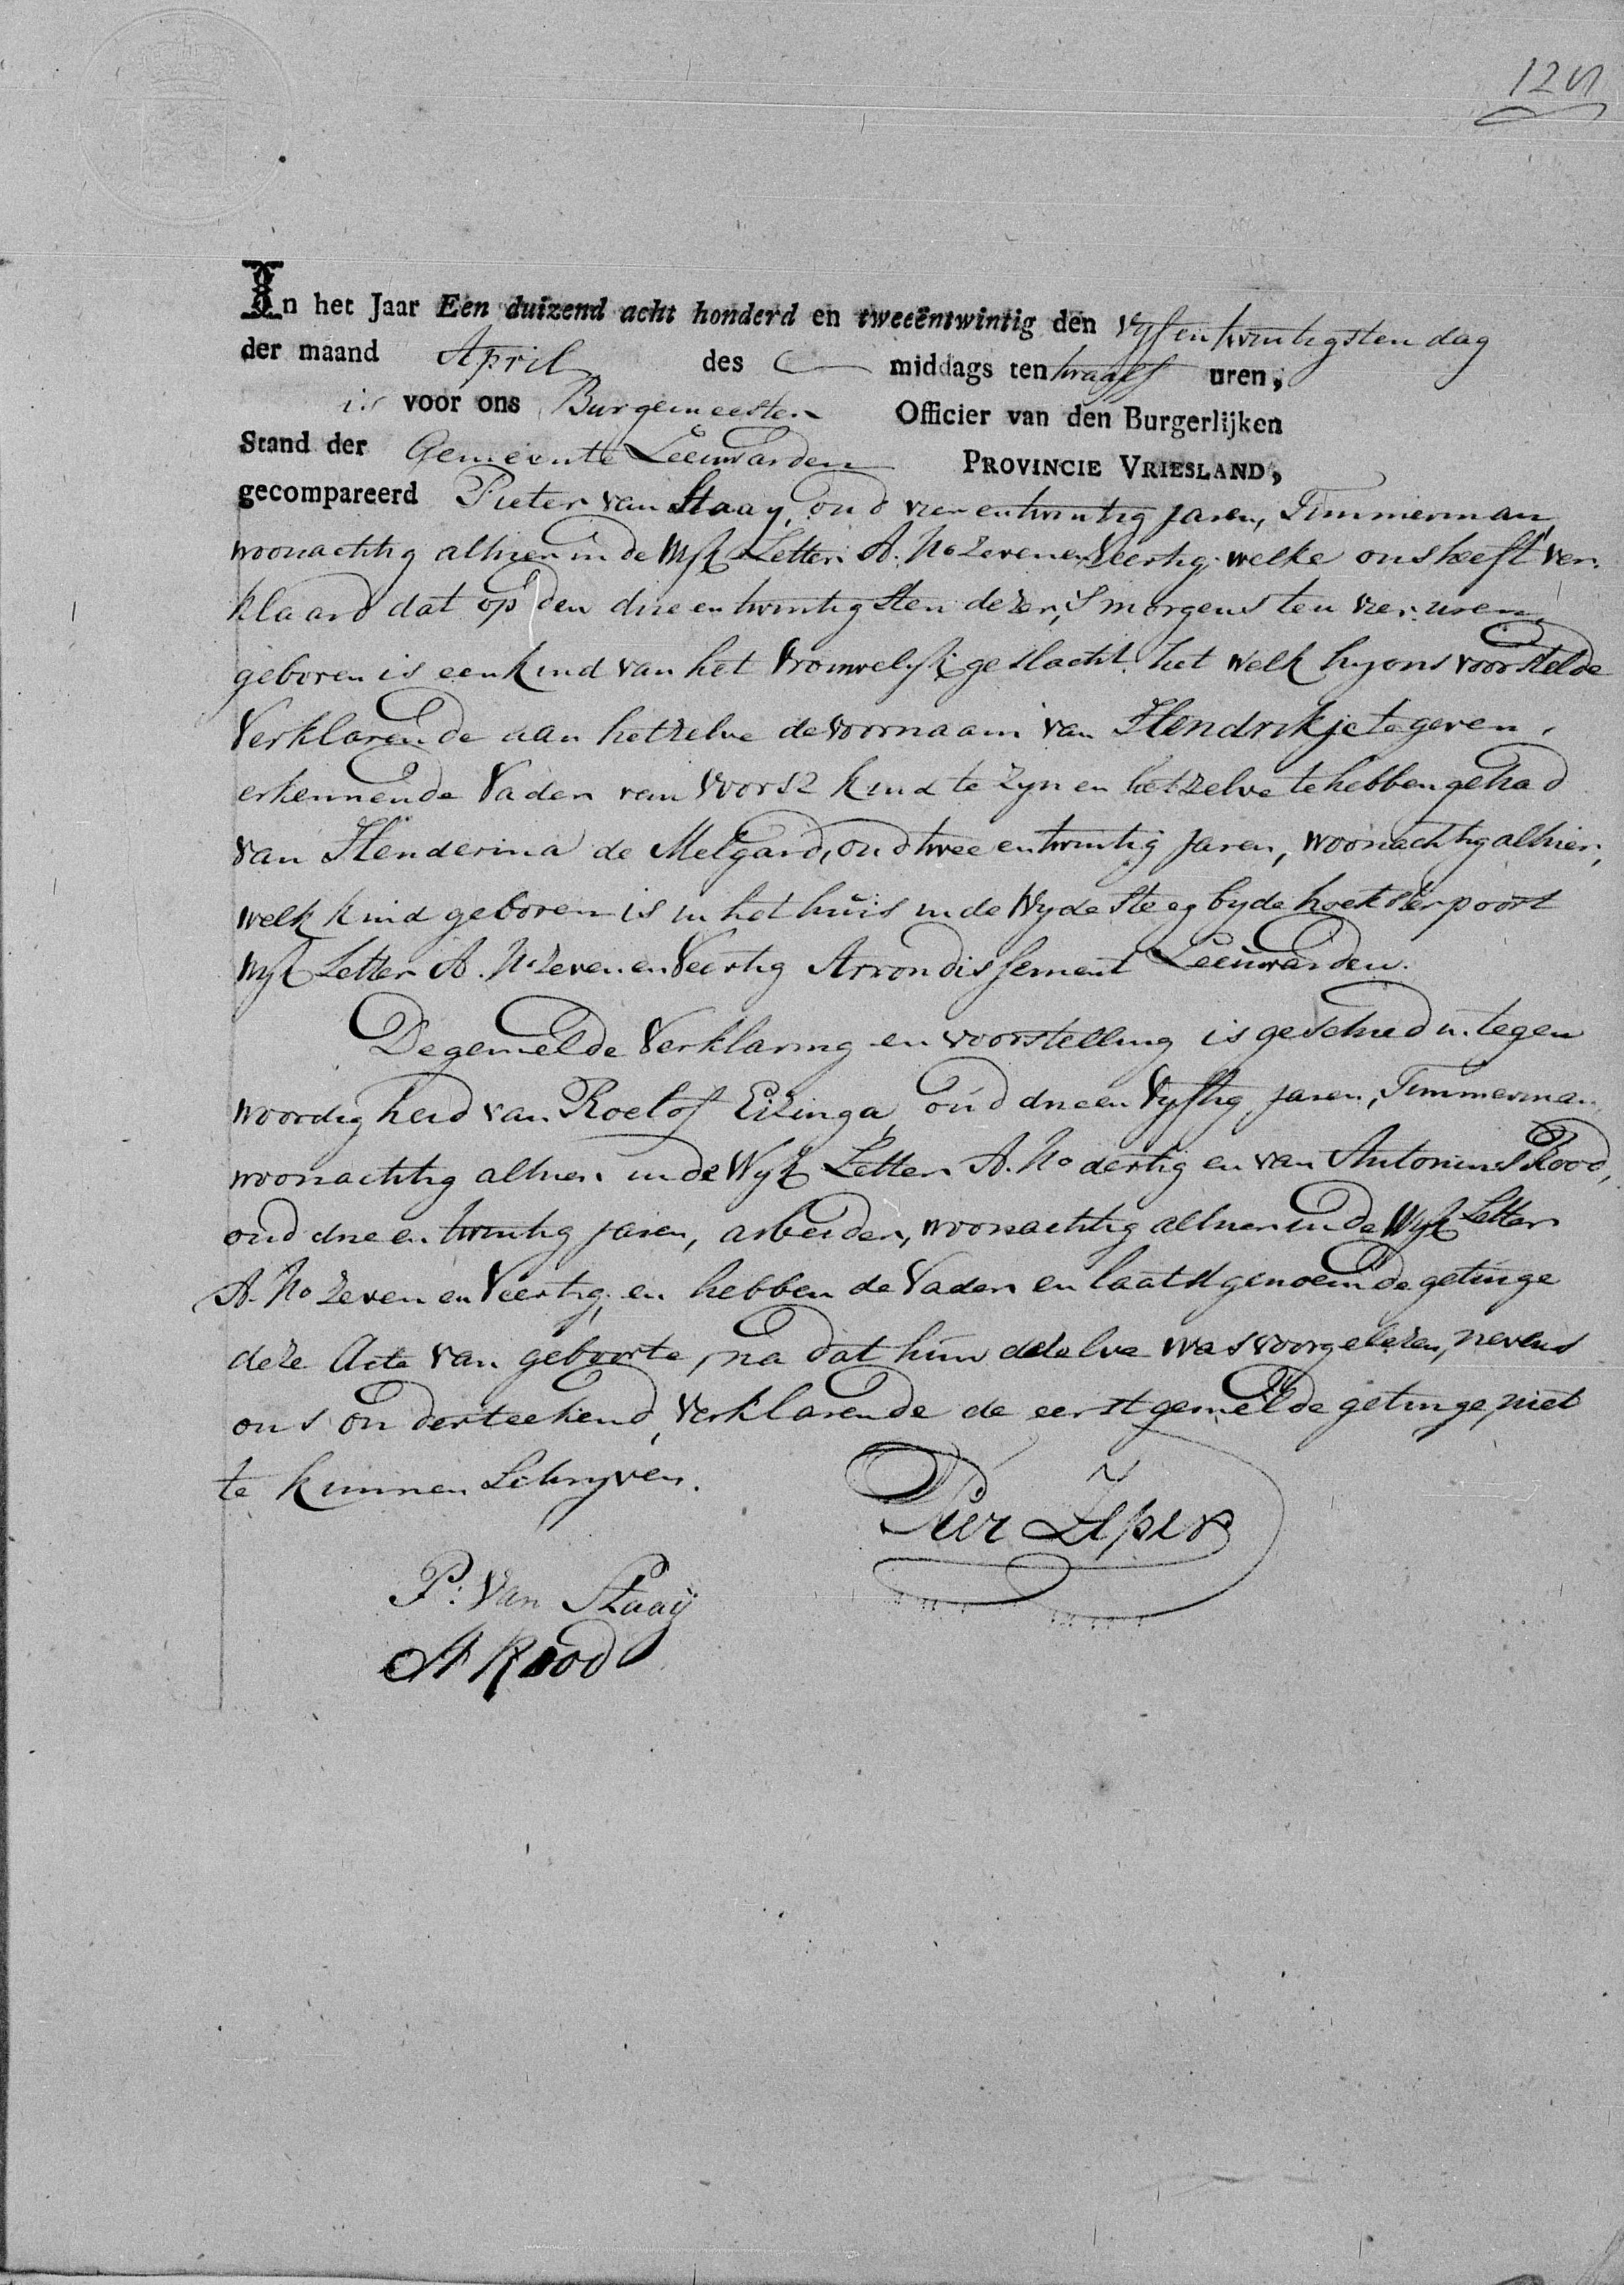 In het Jaar Een duizend acht honderd en tweeëntwintig den Vyfentwintigsten dag
der maand April des middags ten twaalf uren,
is voor ons Burgemeester Officier van den Burgerlijken
Stand der Gemeente Leeuwarden PROVINCIE VRIESLAND,
gecompareerd Pieter van Staay, oud vierentwintig jaren, Timmerman,
woonachtig alhier in de Wyk Letter A. No Zevenen Veertig, welke ons heeft ver
klaard dat op den drieentwintigsten dezer, 's morgens ten vier uren,
geboren is een kind van het Vrouwelyk geslacht het welk hy ons voorstelde
Verklarende aan hetzelve de voornaam van Hendrikje te geven,
erkennende Vader van voorsz kind te zyn en hetzelve te hebben gehad
van Henderina de Melgard, oud twee entwintig jaren, woonachtig alhier,
welk kind geboren is in het huis in de Wyde Steeg by de hoekster poort
Wyk Letter A. No Zeven en Veertig Arrondissement Leeuwarden.
De gemelde Verklaring en voorstelling is geschied in tegen
woordigheid van Roelof Eizinga, oud drie en Vyftig jaren, Timmerman
woonachtig alhier in de Wyk Letter A. No dertig en van Antonius Rood,
oud drie en twintig jaren, arbeider, woonachtig alhier in de Wyk Letter
A. No Zeven en Veertig, en hebben de Vader en laatstgenoemde getuige
deze Acte van geboorte, na dat hun dezelve was voorgelezen, nevens
ons onderteekend, Verklarende de eerstgemelde getuige, niet
te kunnen Schryven.
Pier Zeper
P: Van Staaÿ
A Rood